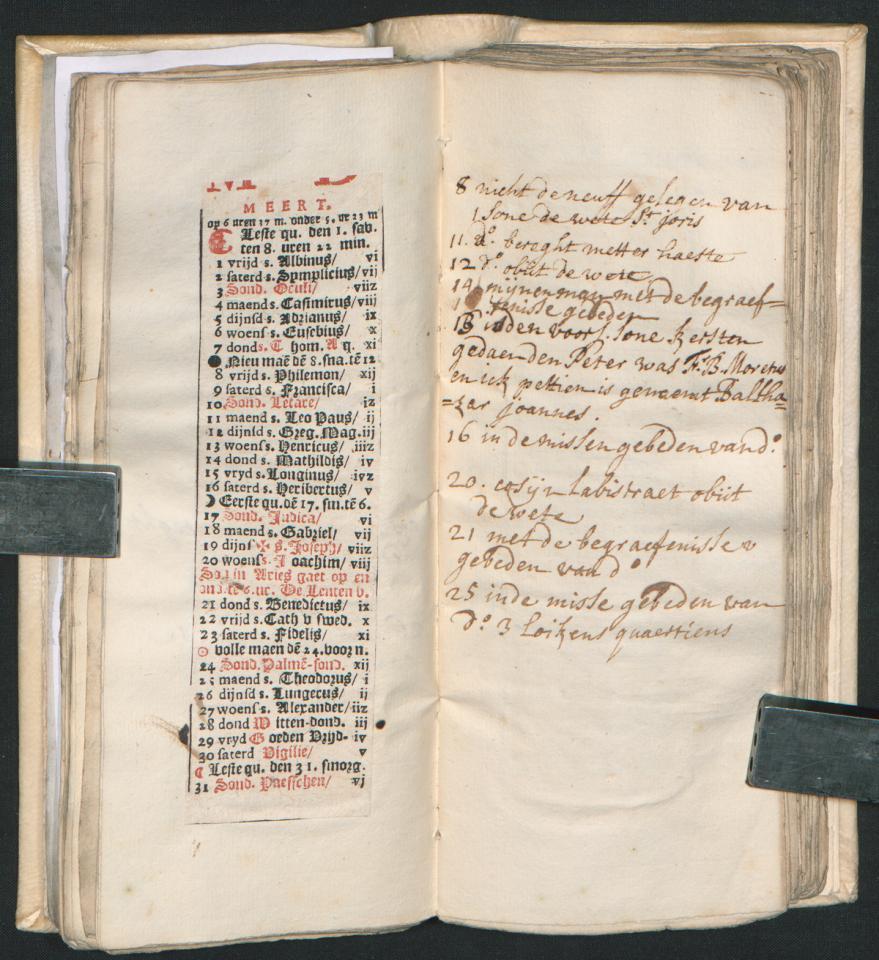 MEERT.
op 6 uren 37 m. onder 5. ur 23 m
Leste qu. den 1. sav.
ten 8. uren 22 min.
1 vrijd s. Albinus/ vi
2 saterd s. Symplicius/ vij
3 Sond. Oculi/ viiz
4 maend s. Casimirus/ viij
5 dijnsd s. Adrianus/ ix
6 woens s. Eusebius/ x
7 dond s. Thom. Aq. xi
Nieu maē dē 8. sna. tē 12
8 vrijd s. Philemon/ xij
9 saterd s. Francisca/ i
10 Sond. Letare/ iz
11 maend s. Leo Paus/ ij
12 dijnsd s. Greg. Mag. iij
13 woens s. Henricus/ iiiz
14 dond s. Mathildis/ iv
15 vryd s. Longinus/ ivz
16 saterd s. Heribertus/ v
Eerste qu. dē 17. sm. tē 6.
17 Sond. Judica/ vi
18 maend s. Gabriel/ vij
19 dijns ✠ S. Joseph/ viiz
20 woens s. Joachim/ viij
Son in Aries gaet op en
ond. te 6. ur. De Lenten b.
21 dond s. Benedictus/ ix
22 vrijd s. Cath v swed. x
23 saterd s. Fidelis/ xi
volle maen dē 24. voor n.
24 Sond. Palmē-sond. xij
25 maend s. Theodorus/ i
26 dijnsd s. Lungerus/ ij
27 woens s. Alexander/ iiz
28 dond Witten-dond. iij
29 vryd Goeden Vrijd- iv
30 saterd Vigilie/ v
Leste qu. den 31. smorg.
31 Sond. Paesschen/ vj
8 nicht de neuff gelegen van
1 sone de wete St joris
11. do. bereght metter haeste
12 do. obiit de wete
14 mijnen man met de begraef=
fenisse gebeden
15 den voors. sone kersten
gedaen den Peter was F. B. Moretus
en ick pettien is genaemt Baltha=
=zar joannes.
16 in de missen gebeden van do.
20. cosijn Labistraet obiit
de wete
21 met de begraefenisse
gebeden van do
25 inde misse gebeden van
do. 3 loikens quaertiens